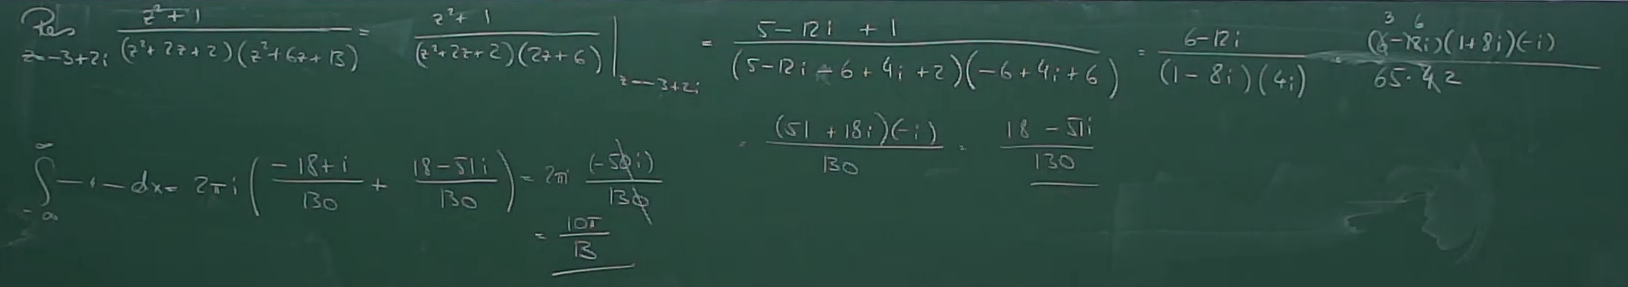 Res_{z=-3+2i} \frac{z²+1}{(z²+2z+2)(z²+6z+13)} = \frac{z²+1}{(z²+2z+2)(2z+6)} |_{z=-3+2i} = \frac{5-12i+1}{(5-12i-6+4i+2)(-6+4i+6)} = \frac{6-12i}{(1-8i)(4i)} = \frac{(6-12i)(1+8i)(-i)}{65·4} 3 6 2
= \frac{(51+18i)(-i)}{130} = \frac{18-51i}{130}
∫_{-∞}^{∞} -··- dx = 2πi ( \frac{-18+i}{130} + \frac{18-51i}{130} ) = 2πi \frac{(-50i)}{130}
= \frac{10π}{13}